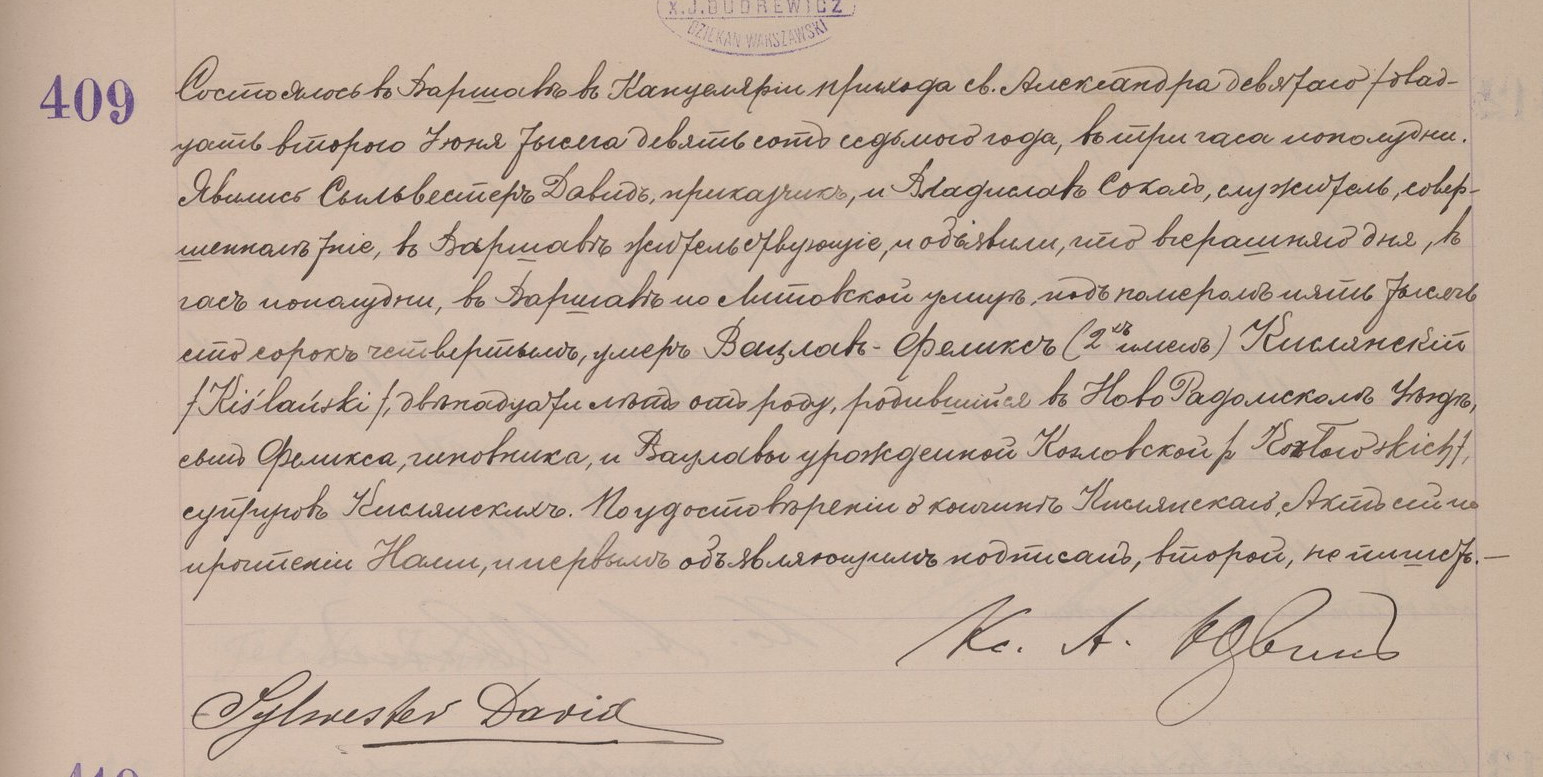 X.J.BUDREWICZ
DZIEKAN WARSZAWSKI
409
Состоялось въ Варшавѣ въ Канцеляріи прихода св. Александра девятаго /двад-
цать втораго Іюня тысяча девятьсотъ седьмого года, въ три часа пополудни.
Явились Сыльвестеръ Давидъ, приказчикъ, и Владиславъ Соколъ, служитель, совер-
шеннолѣтніе, въ Варшавѣ жительствующіе, и объявили, что вчерашняго дня, въ
часъ пополудни, въ Варшавѣ по Литовской улицѣ, подъ номеромъ пять тысячъ
сто сорокъ четвертымъ, умеръ Вацлавъ-Феликсъ (2хъ именъ) Кислянскій
/Kiślański/, двѣнадцати лѣтъ отъ роду, родившійся въ Ново Радомскомъ Уѣздѣ,
сынъ Феликса, чиновника, и Вацлавы урожденной Козловской /z Kozłowskich/,
супруговъ Кислянскихъ. По удостовѣреніи о кончинѣ Кислянскаго, Актъ сей по
прочтеніи Нами, и первымъ объявляющимъ подписанъ, второй, не пишетъ.—
Кс. А.
Sylwester David